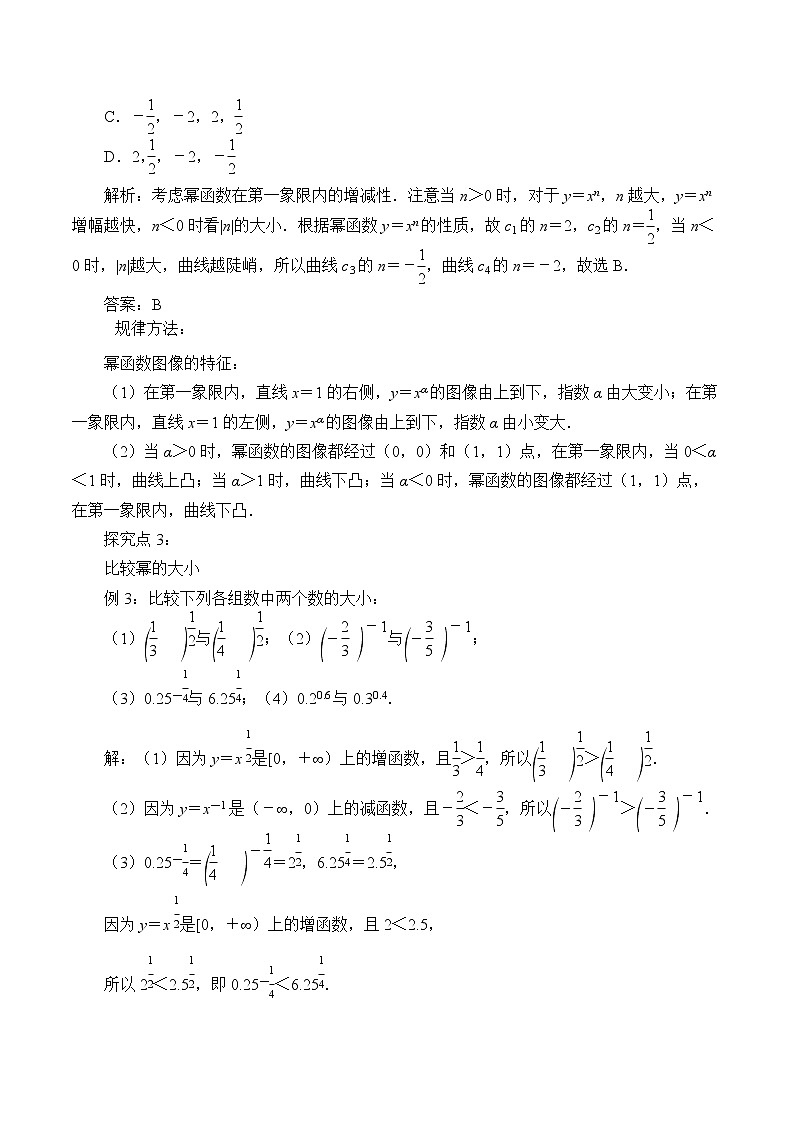 C．－1/2，－2，2，1/2
D．2，1/2，－2，－1/2
解析：考虑幂函数在第一象限内的增减性．注意当 n＞0 时，对于 y＝xⁿ，n 越大，y＝xⁿ
增幅越快，n＜0 时看|n|的大小．根据幂函数 y＝xⁿ 的性质，故 c₁ 的 n＝2，c₂ 的 n＝1/2，当 n＜
0 时，|n|越大，曲线越陡峭，所以曲线 c₃ 的 n＝－1/2，曲线 c₄ 的 n＝－2，故选 B．
答案：B
规律方法：
幂函数图像的特征：
（1）在第一象限内，直线 x＝1 的右侧，y＝x^α 的图像由上到下，指数 α 由大变小；在第
一象限内，直线 x＝1 的左侧，y＝x^α 的图像由上到下，指数 α 由小变大．
（2）当 α＞0 时，幂函数的图像都经过（0，0）和（1，1）点，在第一象限内，当 0＜α
＜1 时，曲线上凸；当 α＞1 时，曲线下凸；当 α＜0 时，幂函数的图像都经过（1，1）点，
在第一象限内，曲线下凸．
探究点 3：
比较幂的大小
例 3：比较下列各组数中两个数的大小：
（1）(1/3)^(1/2)与(1/4)^(1/2)；（2）(－2/3)^(－1)与(－3/5)^(－1)；
（3）0.25^(－1/4)与 6.25^(1/4)；（4）0.2^0.6 与 0.3^0.4．
解：（1）因为 y＝x^(1/2)是[0，＋∞）上的增函数，且1/3＞1/4，所以(1/3)^(1/2)＞(1/4)^(1/2)．
（2）因为 y＝x^(－1) 是（－∞，0）上的减函数，且－2/3＜－3/5，所以(－2/3)^(－1)＞(－3/5)^(－1)．
（3）0.25^(－1/4)＝(1/4)^(－1/4)＝2^(1/2)，6.25^(1/4)＝2.5^(1/2)，
因为 y＝x^(1/2)是[0，＋∞）上的增函数，且 2＜2.5，
所以 2^(1/2)＜2.5^(1/2)，即 0.25^(－1/4)＜6.25^(1/4)．